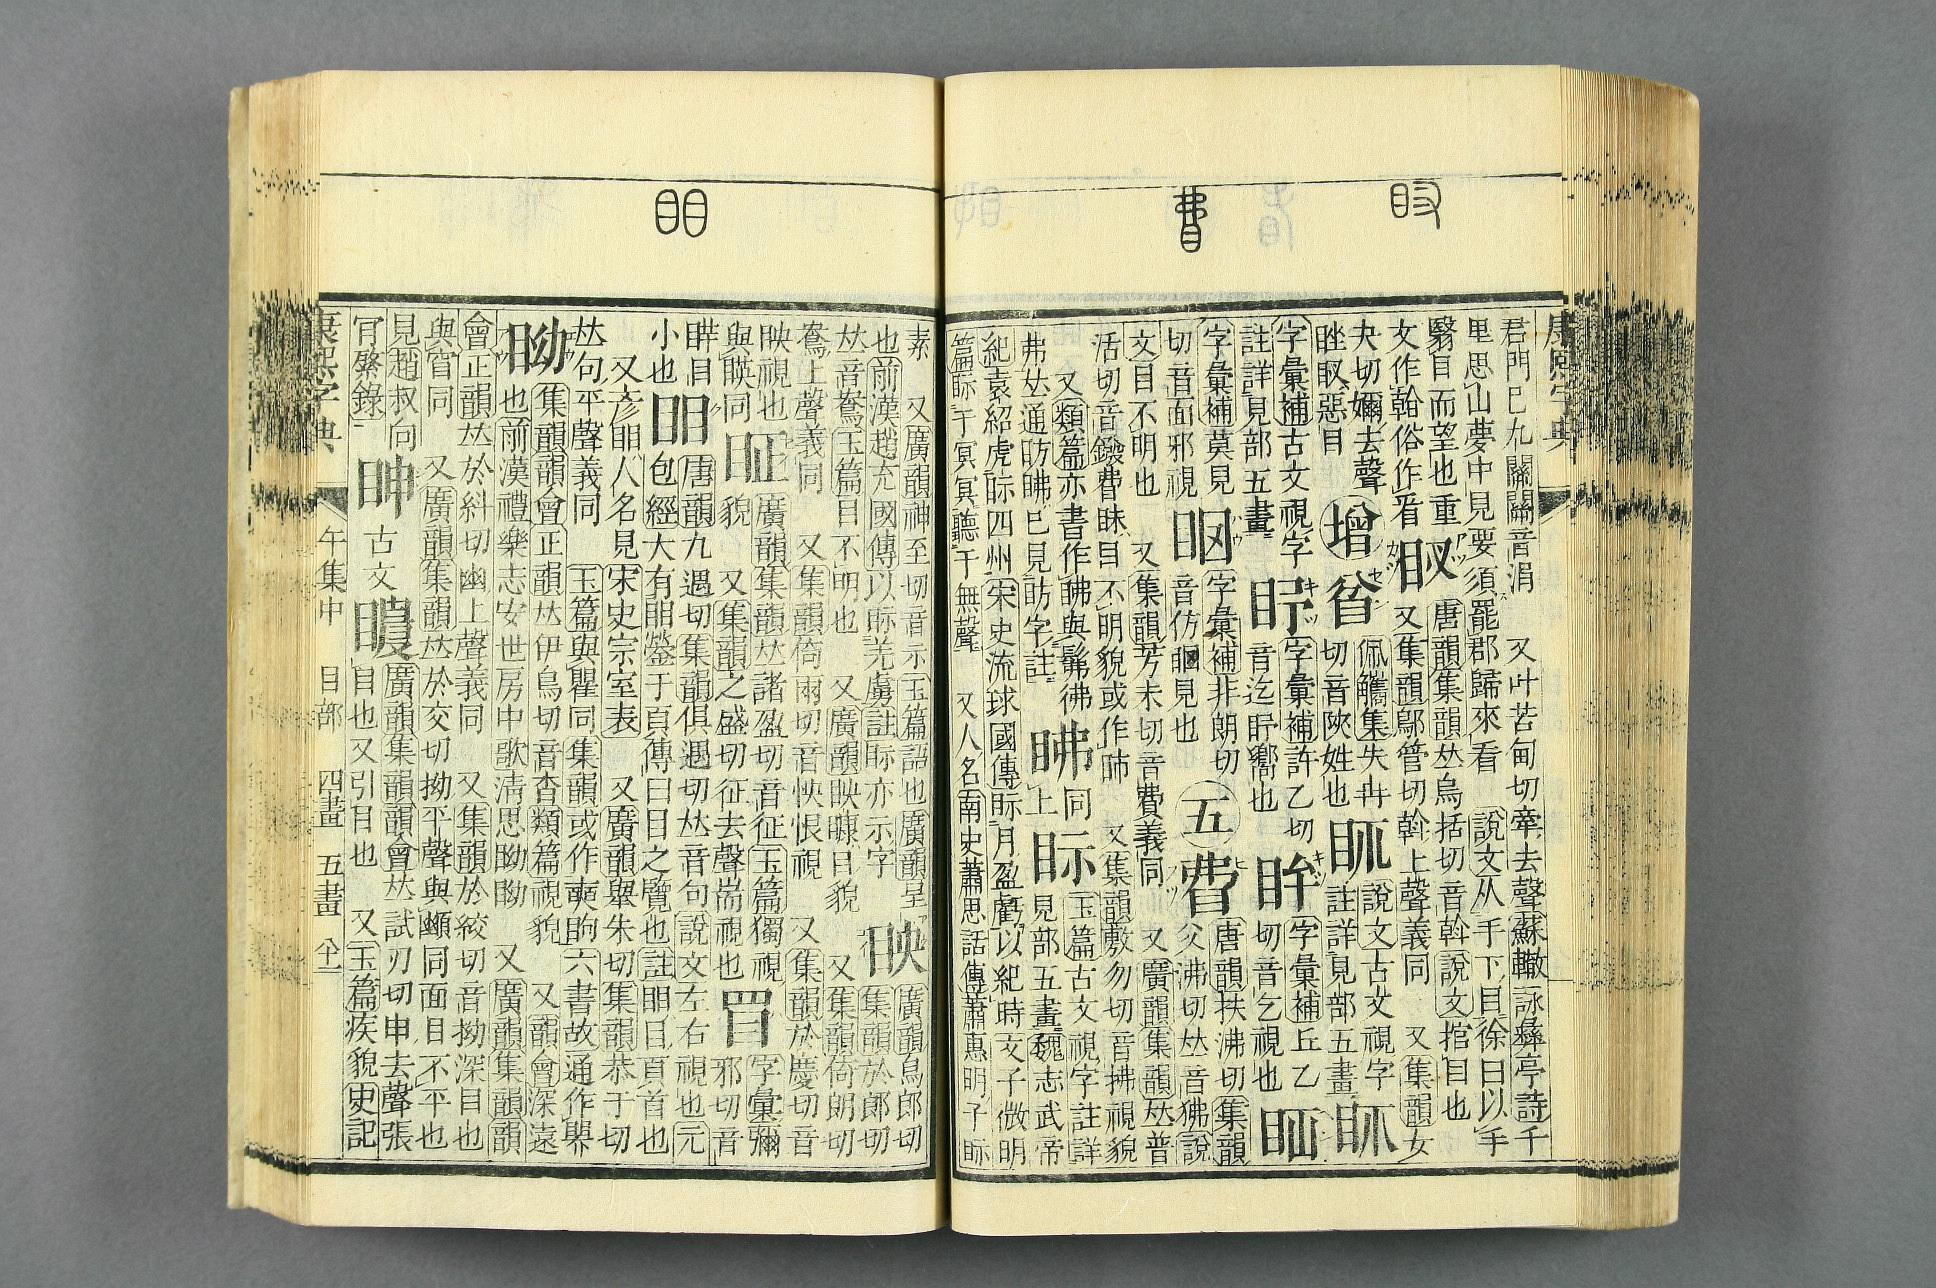 康熙字典
君門已九關關音涓 又叶苦甸切牽去聲蘇轍詠彝亭詩千
里思山夢中見要須罷郡歸來看 說文从手下目徐曰以手
翳目而望也重
文作翰俗作
唐韻集韻𠀤烏括切音斡說文掐目也
又集韻鄔管切斡上聲義同 又集韻女
夬切嬭去聲
惡目
增
佩觿集失冉
切音陝姓也
眂
說文古文視字
註詳見部五畫
眎
字彙補古文視字
註詳見部五畫
盯
字彙補許乙切
音迄盯䁨也
字彙補丘乙
切音乞視也
字彙補莫見
切音面邪視
字彙補非朗切
音仿 見也
五
䀟
唐韻扶沸切集韻
父沸切𠀤音狒說
文目不明也 又集韻芳未切音費義同 又廣韻集韻𠀤普
活切音鏺費眜目不明貌或作䀯 又集韻敷勿切音拂視貌
又類篇亦書作昲與髴彿
弗𠀤通昉昲已見昉字註
昲
同
上
眎
玉篇古文視字註詳
見部五畫魏志武帝
紀袁紹虎眎四州宋史流球國傳眎月盈虧以紀時文子微明
篇眎于冥冥聽于無聲 又人名南史蕭思話傳蕭惠明子眎
素 又廣韻神至切音示玉篇語也廣韻呈
也前漢趙充國傳以眎羌虜註眎亦示字
眏
廣韻烏郎切
集韻於郎切
𠀤音鴦玉篇目不明也 又廣韻眏䁳目貌 又集韻倚朗切
鴦上聲義同 又集韻倚兩切音怏恨視 又集韻於慶切音
映視也
與暎同
眐
廣韻集韻𠀤諸盈切音征玉篇獨視
貌 又集韻之盛切征去聲耑視也
字彙彌
邪切音
䀏目
小也
䀠
唐韻九遇切集韻俱遇切𠀤音句說文左右視也元
包經大有䀠鎣于頁傳曰目之覽也註䀠目頁首也
又彥䀠人名見宋史宗室表 又廣韻舉朱切集韻恭于切
𠀤句平聲義同 玉篇與瞿同集韻或作奭眗六書故通作䀠
眑
集韻韻會正韻𠀤伊鳥切音杳類篇視貌 又韻會深遠
也前漢禮樂志安世房中歌淸思眑眑 又廣韻集韻韻
會正韻𠀤於糾切幽上聲義同 又集韻於絞切音拗深目也
與窅同 又廣韻集韻𠀤於交切拗平聲與顤同面目不平也
見趙叔向
肎綮錄
眒
古文
瞚
廣韻集韻韻會𠀤試刃切申去聲張
目也又引目也 又玉篇疾貌史記
康熙字典 午集中 目部 四畫 五畫